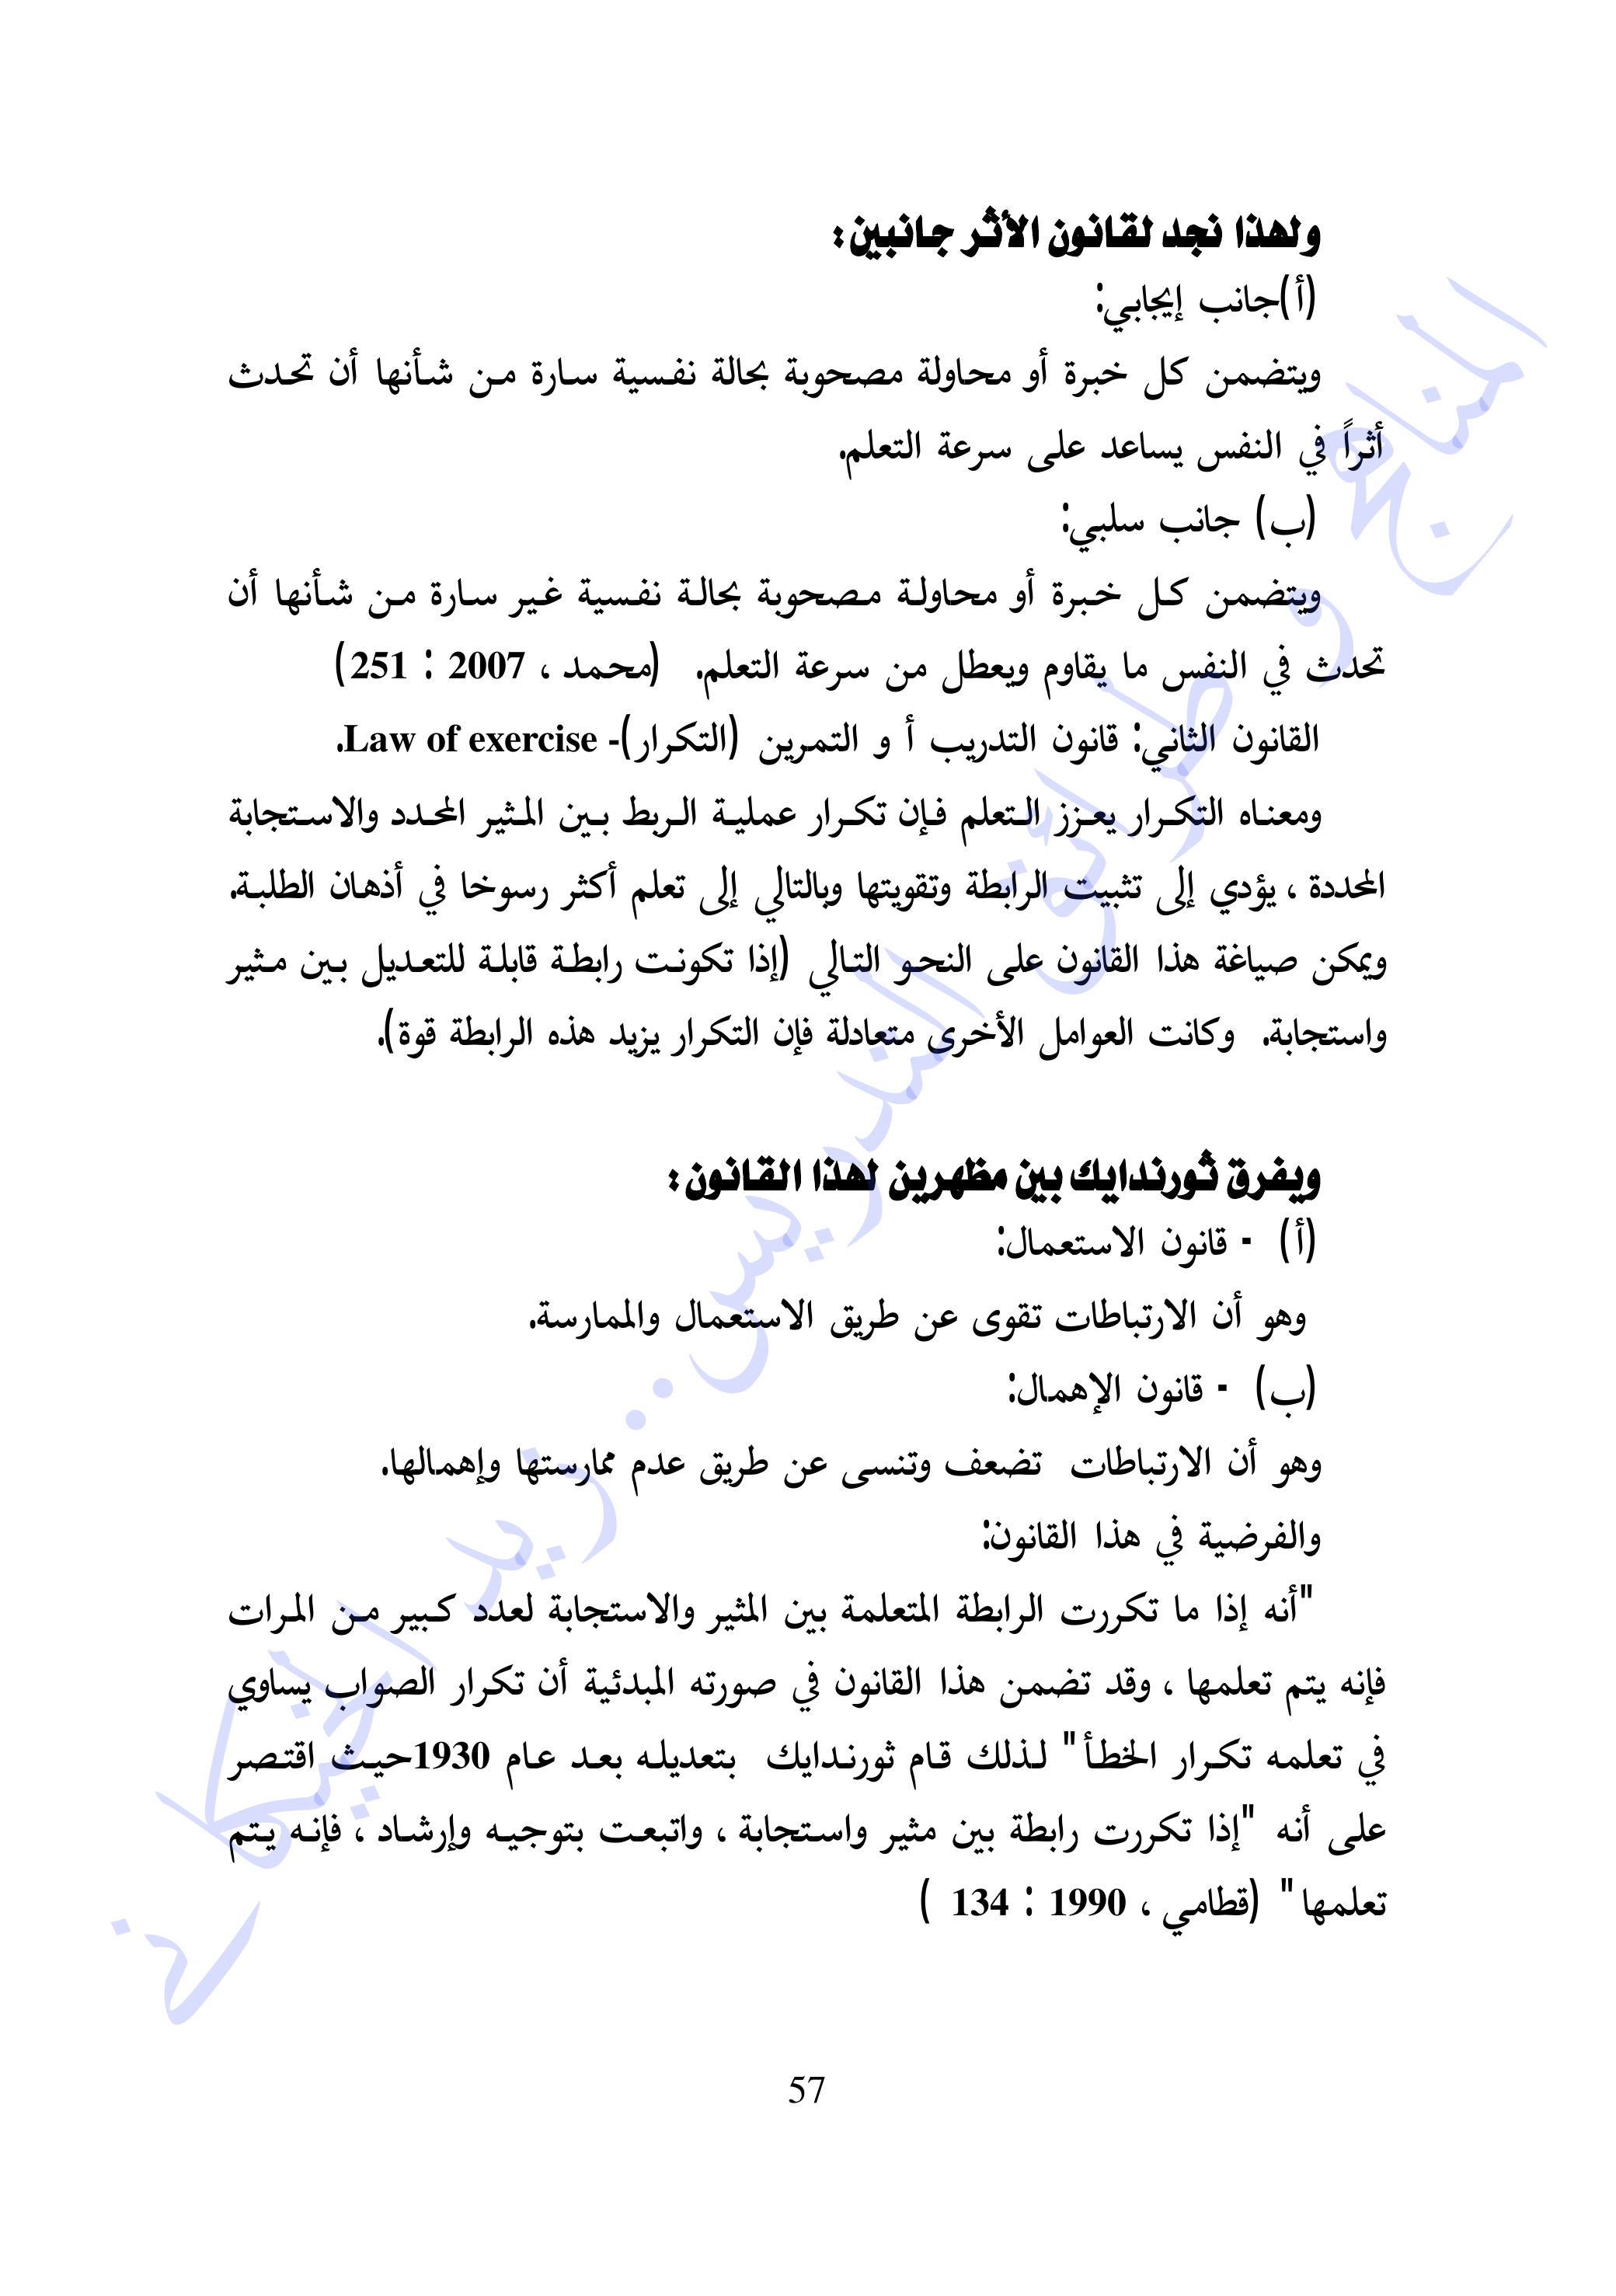 ولهذا نجد لقانون الأثر جانبين:
(أ)جانب إيجابي:
ويتضمن كل خبرة أو محاولة مصحوبة بحالة نفسية سارة من شأنها أن تحدث
أثراً في النفس يساعد على سرعة التعلم.
(ب) جانب سلبي:
ويتضمن كل خبرة أو محاولة مصحوبة بحالة نفسية غير سارة من شأنها أن
تحدث في النفس ما يقاوم ويعطل من سرعة التعلم. (محمد ، 2007 : 251)
القانون الثاني: قانون التدريب أ و التمرين (التكرار)- Law of exercise.
ومعناه التكرار يعزز التعلم فإن تكرار عملية الربط بين المثير المحدد والاستجابة
المحددة ، يؤدي إلى تثبيت الرابطة وتقويتها وبالتالي إلى تعلم أكثر رسوخا في أذهان الطلبة.
ويمكن صياغة هذا القانون على النحو التالي (إذا تكونت رابطة قابلة للتعديل بين مثير
واستجابة. وكانت العوامل الأخرى متعادلة فإن التكرار يزيد هذه الرابطة قوة).
ويفرق ثورندايك بين مظهرين لهذا القانون:
(أ) - قانون الاستعمال:
وهو أن الارتباطات تقوى عن طريق الاستعمال والممارسة.
(ب) - قانون الإهمال:
وهو أن الارتباطات تضعف وتنسى عن طريق عدم ممارستها وإهمالها.
والفرضية في هذا القانون:
"أنه إذا ما تكررت الرابطة المتعلمة بين المثير والاستجابة لعدد كبير من المرات
فإنه يتم تعلمها ، وقد تضمن هذا القانون في صورته المبدئية أن تكرار الصواب يساوي
في تعلمه تكرار الخطأ" لذلك قام ثورندايك بتعديله بعد عام 1930حيث اقتصر
على أنه "إذا تكررت رابطة بين مثير واستجابة ، واتبعت بتوجيه وإرشاد ، فإنه يتم
تعلمها" (قطامي ، 1990 : 134 )
57